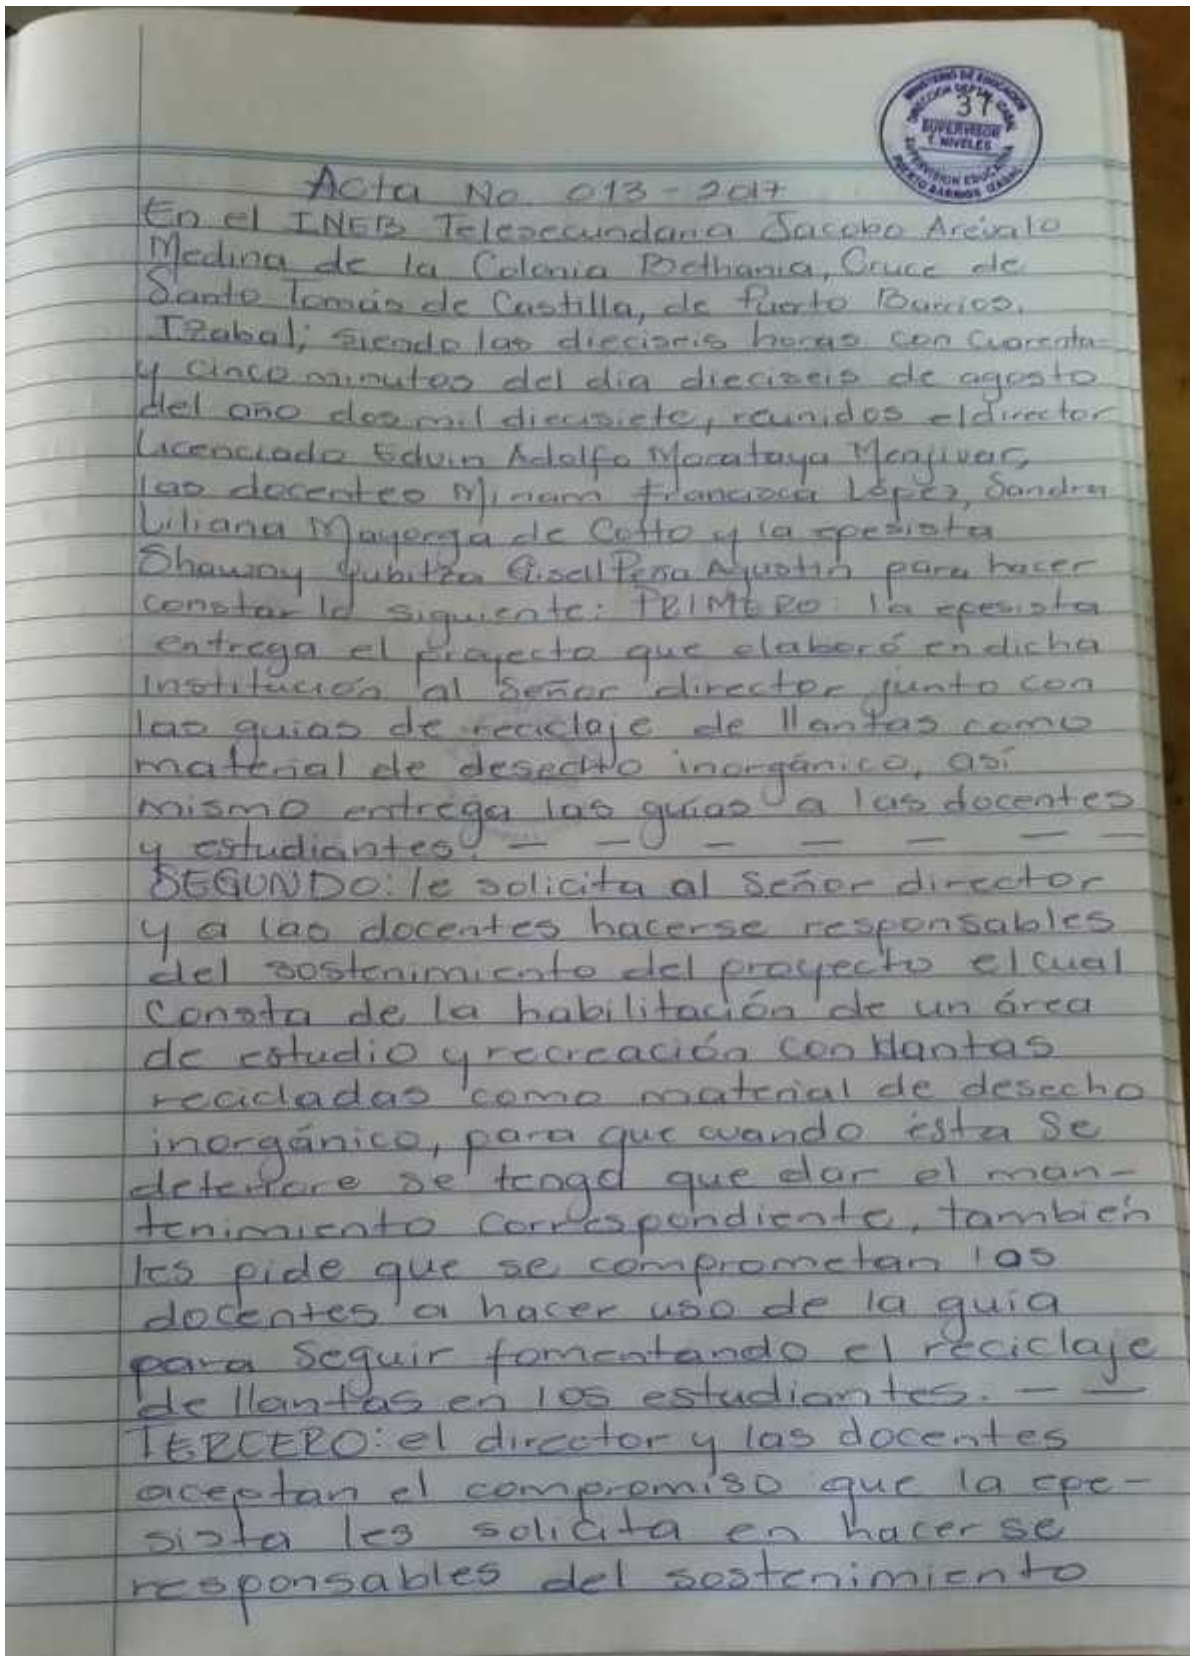 MINISTERIO DE EDUCACION
DIRECCION DEPTAL. IZABAL
37
SUPERVISOR
NIVELES
SUPERVISION EDUCATIVA
PUERTO BARRIOS IZABAL
Acta No. 013-2017
En el INEB Telesecundaria Jacobo Arévalo
Medina de la Colonia Bethania, Cruce de
Santo Tomás de Castilla, de Puerto Barrios,
Izabal; siendo las dieciséis horas con cuarenta
y cinco minutos del día dieciseis de agosto
del año dos mil diecisiete, reunidos el director
Licenciado Edvin Adolfo Mocataya Menjivar,
las docentes Miriam Francisca López, Sandra
Liliana Mayorga de Cotto y la epesista
Shawny Yubitza Gisell Peña Agustin para hacer
constar lo siguiente: PRIMERO: la epesista
entrega el proyecto que elaboró en dicha
institución al Señor director junto con
las guias de reciclaje de llantas como
material de desecho inorgánico, así
mismo entrega las guias a las docentes
y estudiantes. — — — — — —
SEGUNDO: le solicita al Señor director
y a las docentes hacerse responsables
del sostenimiento del proyecto el cual
Consta de la habilitación de un área
de estudio y recreación con llantas
recicladas como material de desecho
inorgánico, para que cuando ésta Se
deteriore se tenga que dar el man-
tenimiento correspondiente, también
les pide que se comprometan las
docentes a hacer uso de la guia
para Seguir fomentando el reciclaje
de llantas en los estudiantes. — —
TERCERO: el director y las docentes
aceptan el compromiso que la epe-
sista les solicita en hacerse
responsables del sostenimiento